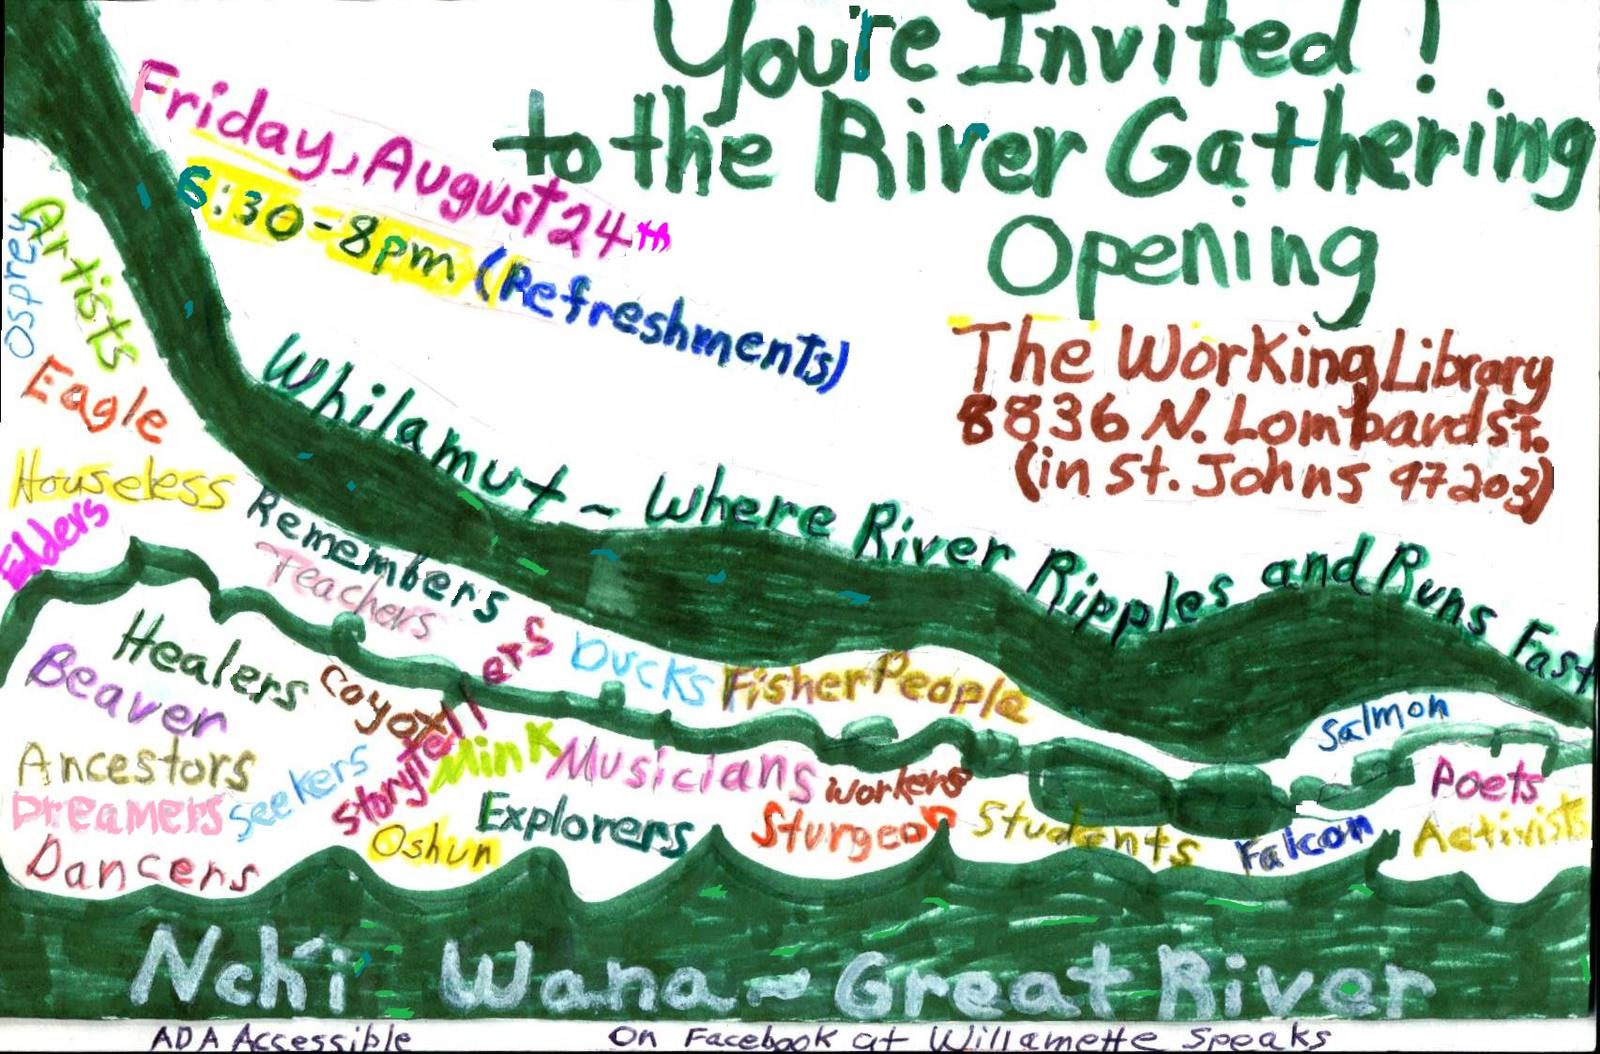 You're Invited!
to the River Gathering
Opening
Friday, August 24th
6:30-8pm (Refreshments)
The Working Library
8836 N. Lombard St.
(in St. Johns 97203)
Whilamut ~ Where River Ripples and Runs Fast
Osprey
Artists
Eagle
Houseless
Elders
Remembers
Teachers
Healers
Beaver
Coyote
Storytellers
Ducks
FisherPeople
Salmon
Ancestors
Seekers
Mink
Musicians
Workers
Poets
Dreamers
Explorers
Sturgeon
Students
Falcon
Activists
Dancers
Oshun
Nch'i Wana ~ Great River
ADA Accessible
On Facebook at Willamette Speaks